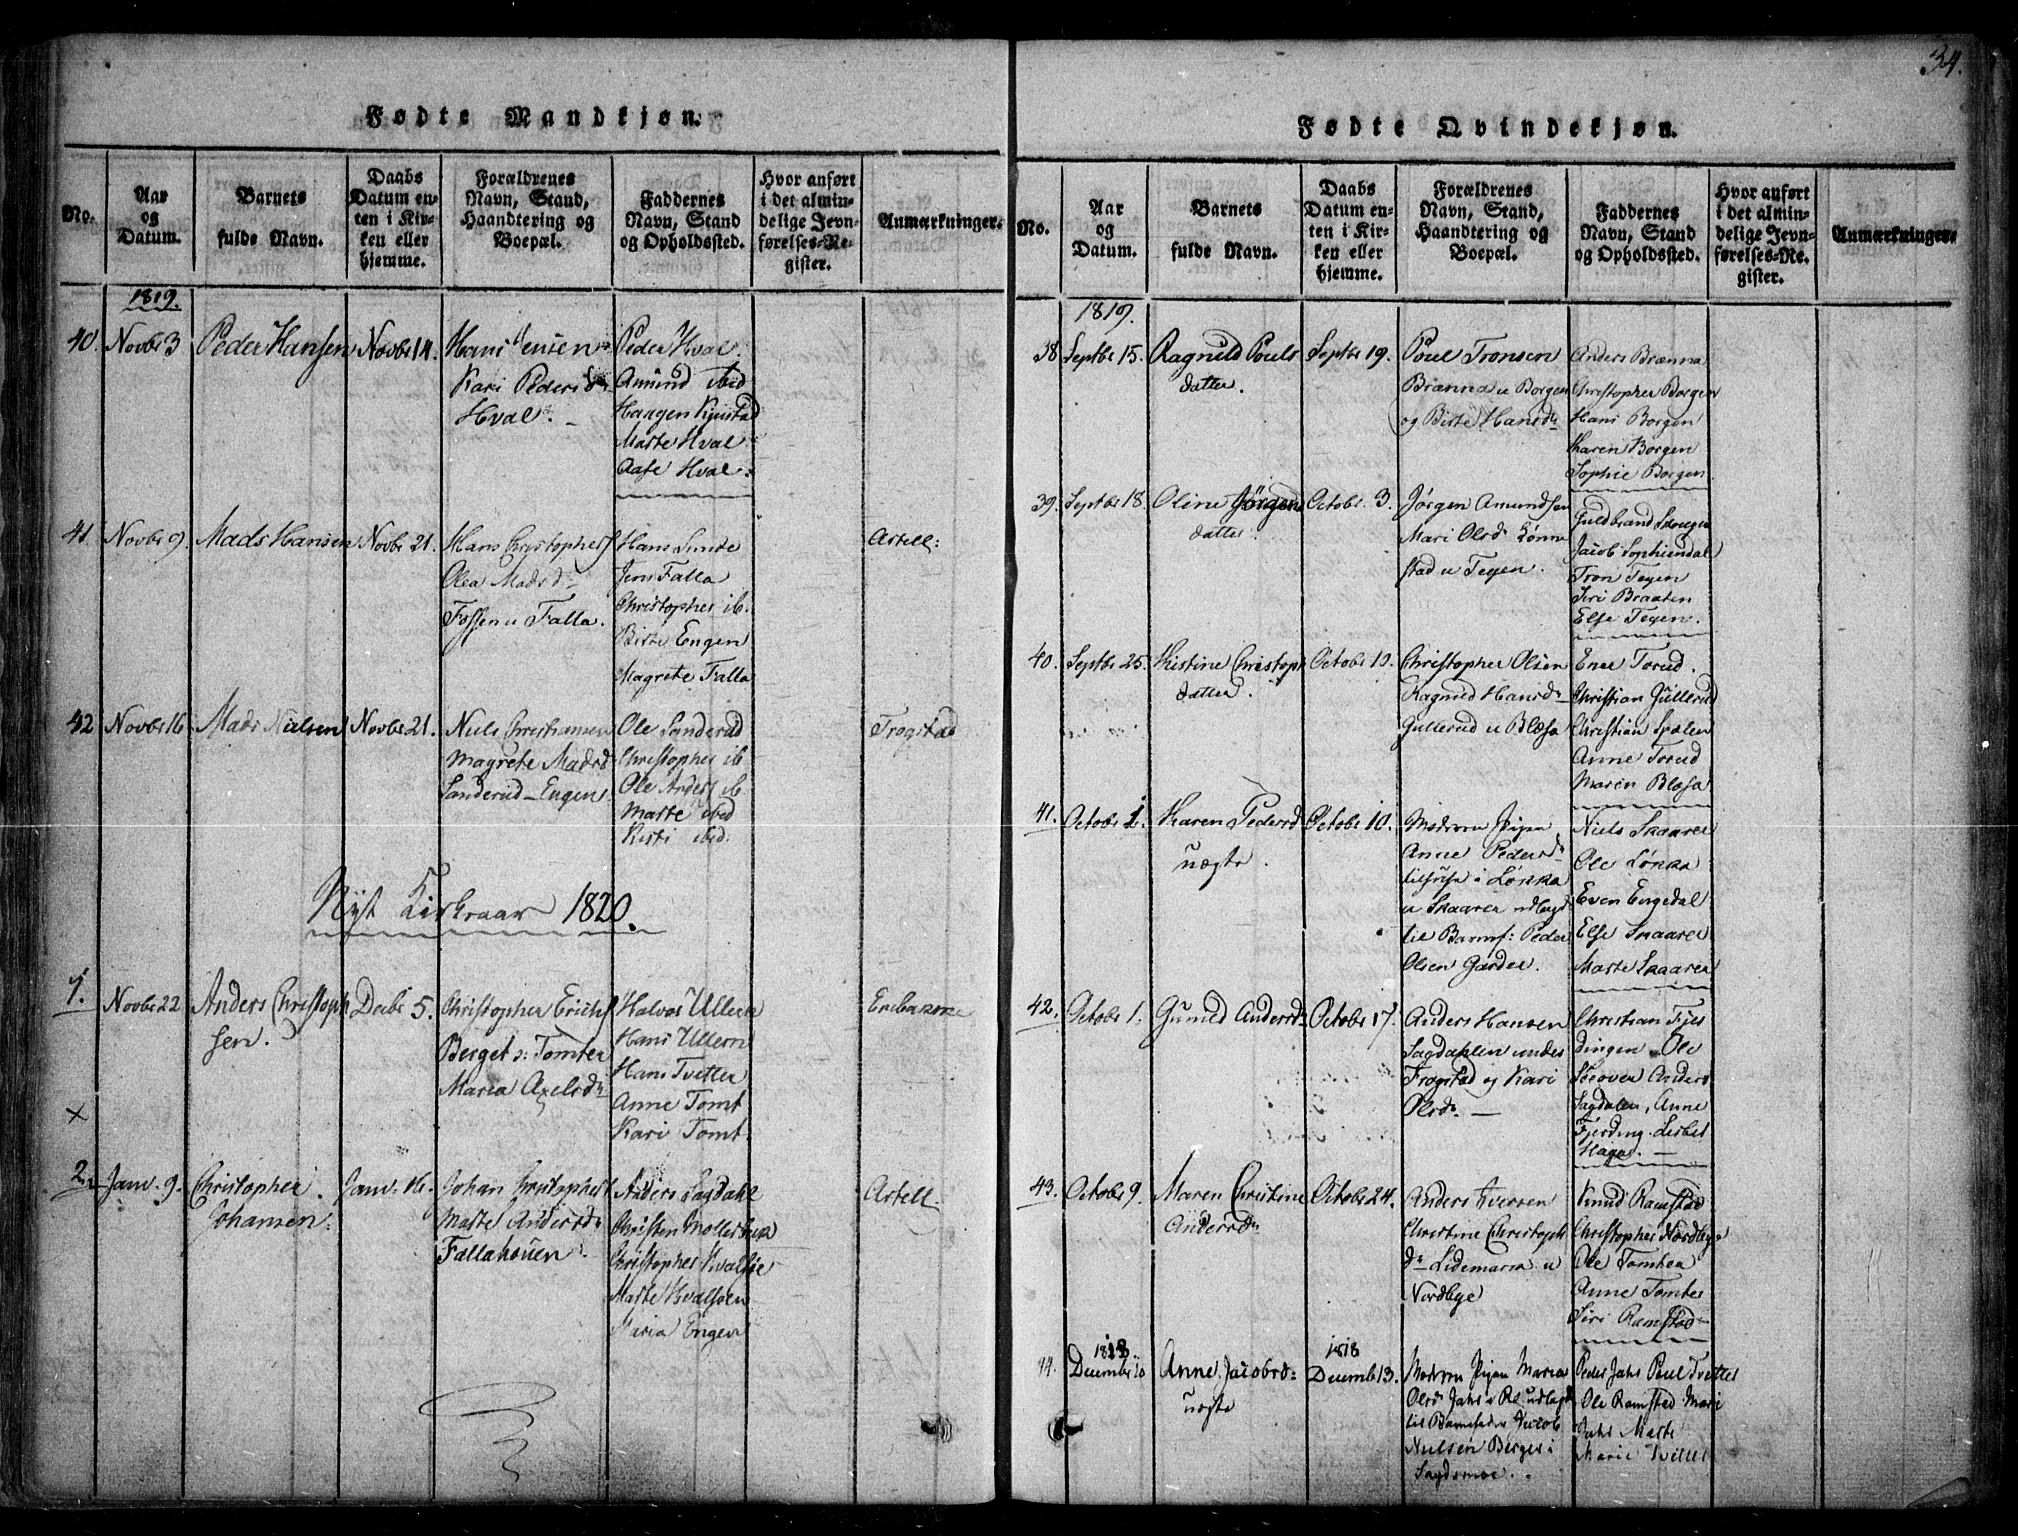 34.
Fødte Mandkjøn.
No.
Aar
og
Datum.
Barnets
fulde Navn.
Daabs
Datum en-
ten i Kir-
ken eller
hjemme.
Forældrenes
Navn, Stand,
Haandtering og
Boepæl.
Faddernes
Navn, Stand
og Opholdssted.
Hvor anført
i det almin-
delige Jevn-
førelses-Re-
gister.
Anmærkninger.
1819.
40. Novbr 3
Peder Hansen
Novbr 14.
Hans Jensen
Kari Pedersdr
Hval.
Peder Hval.
Amund ibid
Haagen Kjnstad
Marte Hval
Aase Hval
41. Novbr 9.
Mads Hansen
Novbr 21.
Hans Christophers
Olea Madsd
Fossen u Falla.
Hans Sunde
Jens Falla
Christopher ib.
Birte Engen
Magrete Falla
Astell:
42 Novbr 16
Mads Nielsen
Novbr 21.
Niels Christiansen
Magrete Madsd
Sanderud-Engen
Ole Sanderud
Christopher ib
Ole Anders ib.
Marte ibid
Kisti ibid.
Frogstad
Nyt Kirkeaar 1820.
1. Novbr 22
Anders Christoph
sen.
Decbr 5.
Christopher Erichs
Berget u: Tomter
Maria Axelsdr
Halvor Ullern
Hans Ullern
Hans Tvetter
Anne Tomt
Kari Tomt
Enebakone
x
2. Janv. 9.
Christopher
Johansen.
Janv. 16.
Johan Christophers
Marte Andersdr
Fallahouen
Anders Sagdahl
Christen Mollerhua
Christopher Kvalsøe
Marte Kvalsøen
Maria Engen
Astell.
Fødte Qvindekjøn.
No.
Aar
og
Datum.
Barnets
fulde Navn.
Daabs
Datum en-
ten i Kir-
ken eller
hjemme.
Forældrenes
Navn, Stand,
Haandtering og
Boepæl.
Faddernes
Navn, Stand
og Opholdssted.
Hvor anført
i det almin-
delige Jevn-
førelses-Re-
gister.
Anmærkninger.
1819.
38 Septbr 15.
Ragnild Pouls
datter.
Septbr 19.
Poul Tronsen
Brænna u Borgen
og Birte Hansdr
Anders Brænna
Christopher Borgen
Hans Borgen
Karen Borgen
Sophie Borgen
39. Septbr 18.
Oline Jörgens
datter.
Octobr 3.
Jørgen Amundsen
Mari Olsdr Lønne
stad u Teyen.
Guldbrand Skougen
Jacob Sophiendal
Tron Teyen
Siri Braaten
Else Teyen.
40. Septbr 25.
Kistine Christoph
datter.
Octobr 10.
Christopher Olsen
Ragnild Hansdr
Gullerud u Blæsa
Ener Torud.
Christian Gullerud
Christian Spølen
Anne Torud
Maren Blæsa
41. Octobr 1.
Karen Pedersd
uægte.
Octobr 10.
Moderen Pigen
Anne Pedersdr
tilhuse i Løkka
u Skaarer udlagd
til Barnef: Peder
Olsen Garder.
Niels Skaarer
Ole Løkka
Even Engedal
Else Skaarer
Marte Skaarer
42. Octobr 1.
Guned Andersdr
Octobr 17.
Anders Hansen
Sagdahlen under
Frogstad og Kari
Olsdr
Christian Fjer
dingen Ole
Skoven Anders
Sagdalen, Anne
Fjerding Lisbet
Hager.
43. Octobr 9.
Maren Christine
Andersdr
Octobr 24.
Anders Iversen
Christine Christoph
dr Lidemarka u
Nordbye
Knud Ramstad
Christopher Nordbye
Ole Tomter
Anne Tomter
Siri Ramstad
44. 1818
Decembr 10
Anne Jacobsd:
uægte
1818
Decembr 13.
Moderen Pigen Maria
Olsdr Jahr u R udlagd
til Barnefader Jacob
Nielsen Berger i
Sagdsmoe.
Peder Jahr Poul Tvetter
Ole Ramstad Mari
Jahr Marte
Marie Tvetter